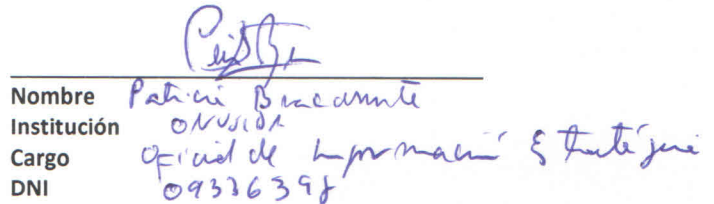 Nombre Patricia Bracamonte
Institución ONUSIDA
Cargo Oficial de Información Estratégica
DNI 09336398